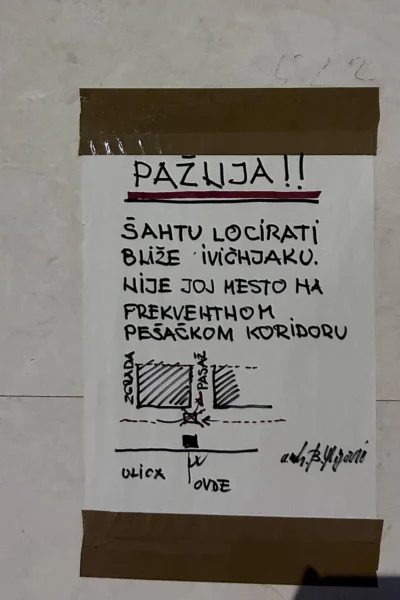 PAŽNJA!!
ŠAHTU LOCIRATI
BLIŽE IVIČNJAKU.
NIJE JOJ MESTO NA
FREKVENTNOM
PEŠAČKOM KORIDORU
ZGRADA
PASAŽ
ULICA
OVDE